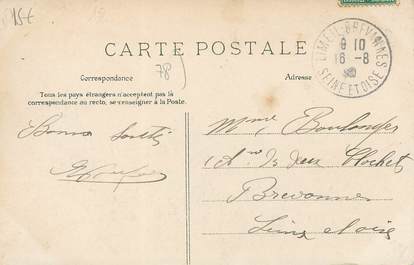 15€
LIMEIL-BREVANNES
9 10
16 -8
SEINE ET OISE
CARTE POSTALE
78
Correspondance
Adresse
Tous les pays étrangers n'acceptent pas la
correspondance au recto, se renseigner à la Poste.
Bonne Santé
Mme Boulanger
Brevannes
Seine et oise